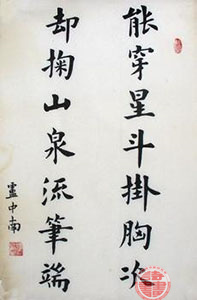 能穿星斗掛胸次
却掬山泉流筆端
盧中南